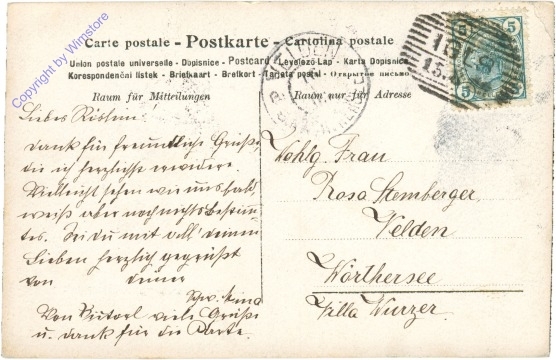 Carte postale - Postkarte - Cartolina postale
Union postale universelle - Dopisnice - Postcard - Levelező-Lap - Karta Dopisnica
Korespondenční lístek - Briefkaart - Brefkort - Tarjeta postal - Открытое письмо
Raum für Mitteilungen
Raum nur für Adresse
VELDEN
5
5
5
IGLS
15
Liebes
Dank für freundliche Grüße
die ich herzlichst erwidere
Vielleicht sehen wir uns bald
weiß aber noch nichts Bestimm
tes. Sei du mit all' deinen
Lieben herzlich gegrüßt
von deiner
Schw. Anna
Von viele Grüße
u. dank für die Karte.
Wohlg. Frau
Rosa Stemberger
Velden
Wörthersee
Villa Wurzer.
Copyright by Wimstore